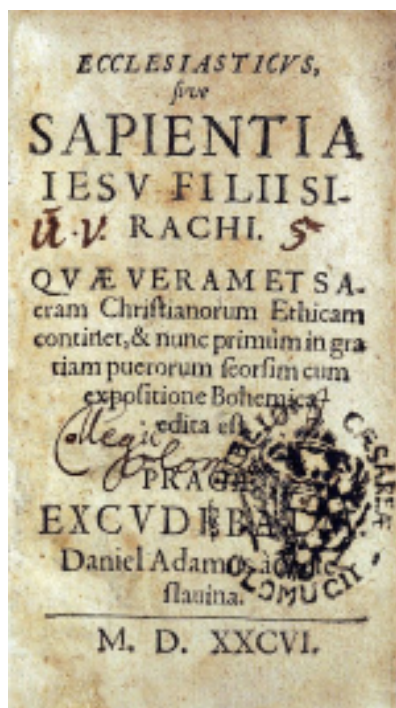 ECCLESIASTICVS,
ſive
SAPIENTIA
IESV FILII SI-
RACHI. 5
QVÆ VERAM ET SA-
cram Chriſtianorum Ethicam
continet, & nunc primùm in gra
tiam puerorum ſeorſim cum
expoſitione Bohemica
edita eſt.
Collegii
PRAGÆ
EXCVDEBAT
Daniel Adamus à
ſlauina.
CÆSAREÆ
OLOMUCII
M. D. XXCVI.